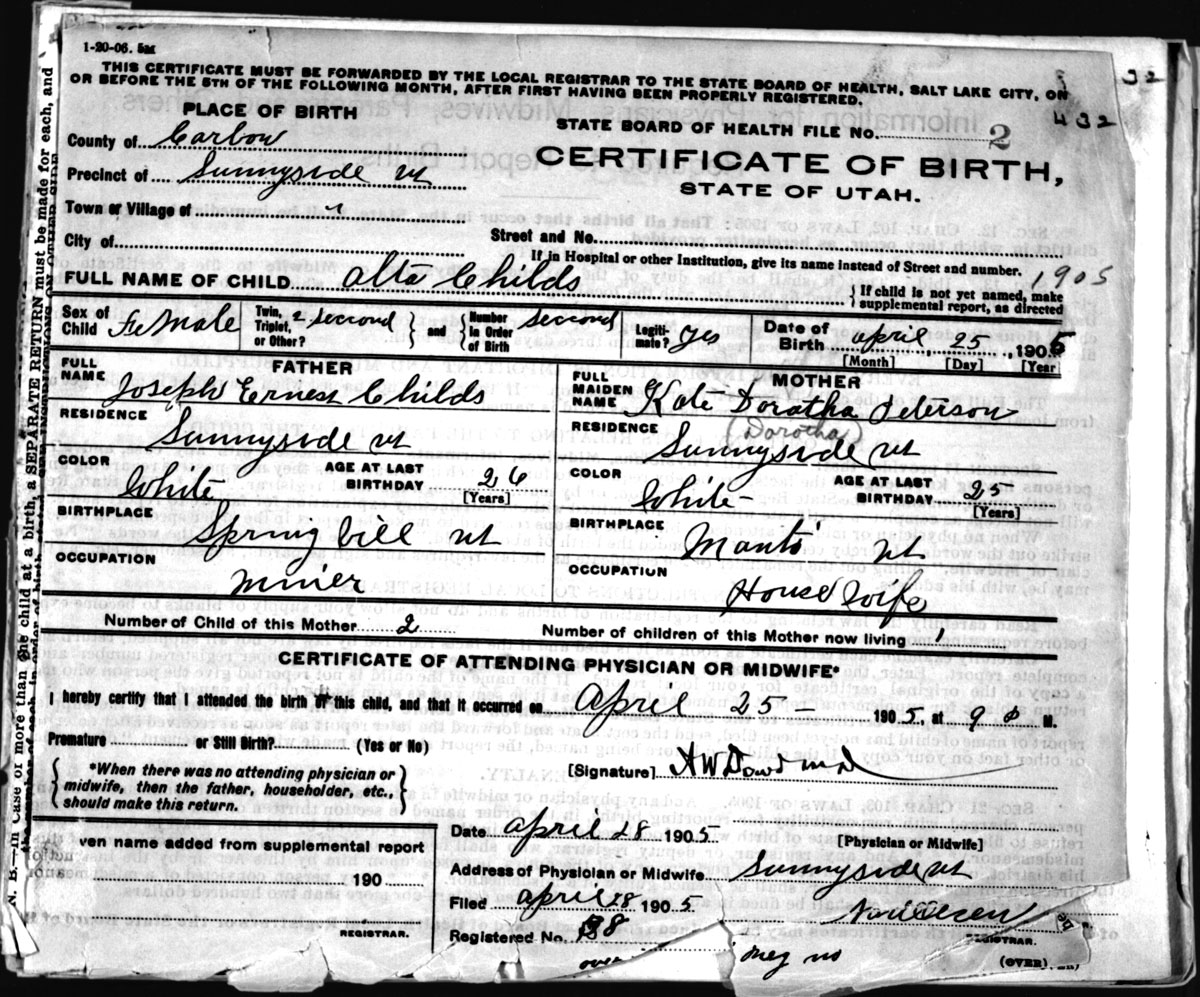 1-20-06. 5M
THIS CERTIFICATE MUST BE FORWARDED BY THE LOCAL REGISTRAR TO THE STATE BOARD OF HEALTH, SALT LAKE CITY, ON
OR BEFORE THE 5TH OF THE FOLLOWING MONTH, AFTER FIRST HAVING BEEN PROPERLY REGISTERED.
32
432
PLACE OF BIRTH
STATE BOARD OF HEALTH FILE NO. 2
County of Carbon
CERTIFICATE OF BIRTH,
Precinct of Sunnyside ut
STATE OF UTAH.
Town or Village of
City of
Street and No.
If in Hospital or other Institution, give its name instead of Street and number.
1905
FULL NAME OF CHILD Alta Childs
If child is not yet named, make supplemental report, as directed
Sex of Child Female
Twin, Triplet, or Other? 2 second
and
Number in Order of Birth second
Legitimate? yes
Date of Birth april 25 1905
[Month] [Day] [Year]
FATHER
FULL NAME Joseph Ernest Childs
RESIDENCE Sunnyside ut
COLOR White
AGE AT LAST BIRTHDAY 26
[Years]
BIRTHPLACE Springville ut
OCCUPATION Minier
MOTHER
FULL MAIDEN NAME Kate Doratha Peterson
(Dorotha)
RESIDENCE Sunnyside ut
COLOR White
AGE AT LAST BIRTHDAY 25
[Years]
BIRTHPLACE Manti ut
OCCUPATION House Wife
Number of Child of this Mother 2
Number of children of this Mother now living 1
CERTIFICATE OF ATTENDING PHYSICIAN OR MIDWIFE*
I hereby certify that I attended the birth of this child, and that it occurred on April 25 1905, at 9 M.
Premature or Still Birth? (Yes or No)
*When there was no attending physician or
midwife, then the father, householder, etc.,
should make this return.
[Signature] A W Dowd M D
[Physician or Midwife]
ven name added from supplemental report
190
REGISTRAR.
Date april 28 1905
Address of Physician or Midwife Sunnyside ut
Filed april 28 1905
REGISTRAR.
Registered No. 88
over
(OVER)
N. B.—In Case of more than one child at a birth, a SEPARATE RETURN must be made for each, and